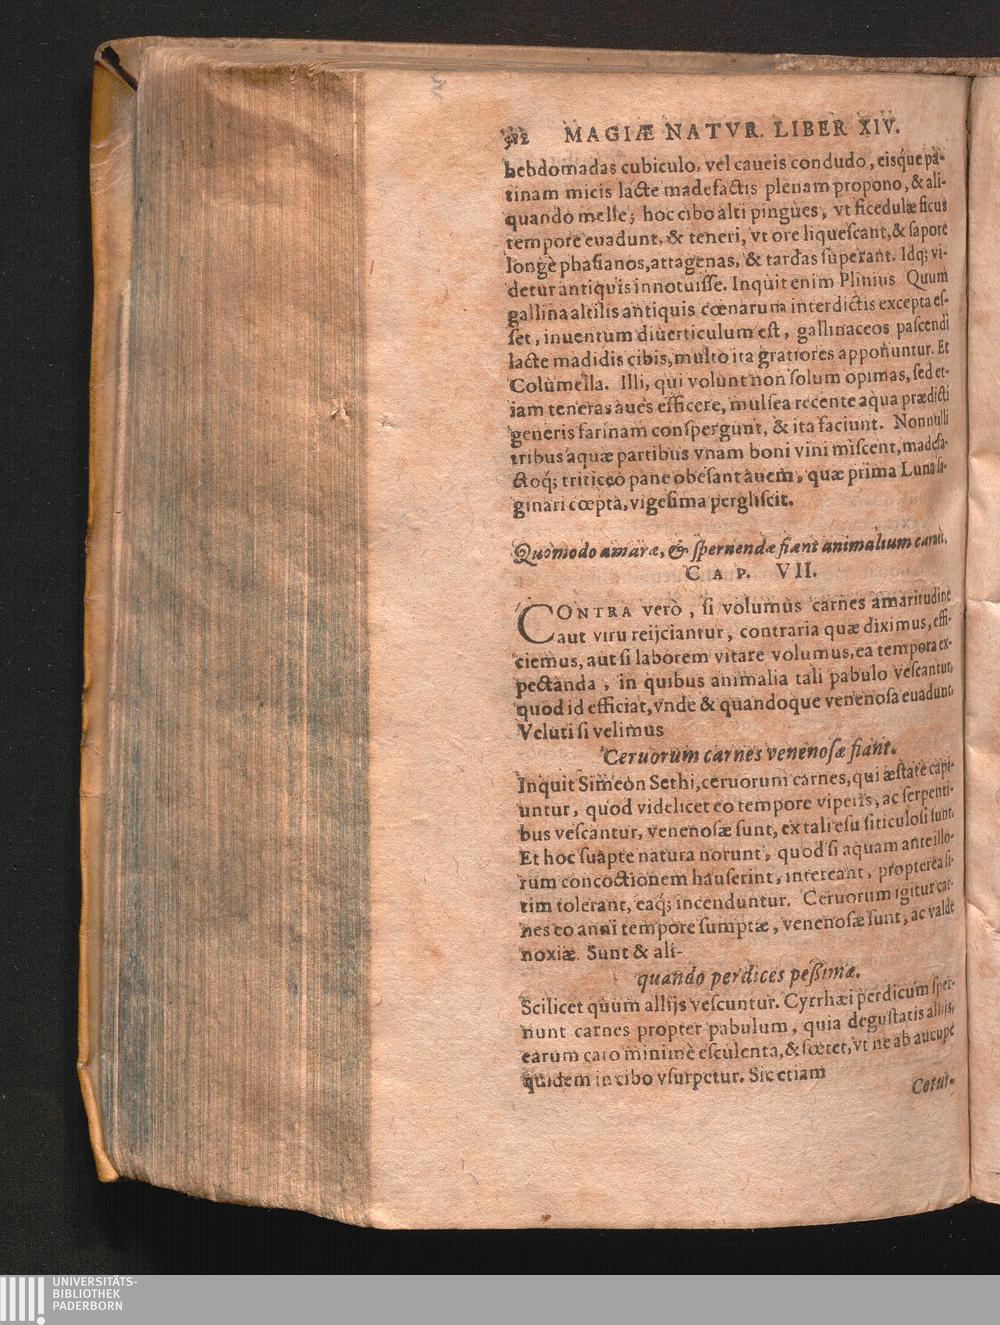 512 MAGIÆ NATVR. LIBER XIV.
hebdomadas cubiculo, vel caueis condudo, eisq́ue pa-
tinam micis lacte madefactis plenam propono, & ali-
quando melle; hoc cibo alti pingues, vt ficedulæ ficus
tempore euadunt, & teneri, vt ore liquescant, & sapore
longè phasianos, attagenas, & tardas superant. Idq; vi-
detur antiquis innotuisse. Inquit enim Plinius Quum
gallina altilis antiquis cœnarum interdictis excepta es-
set, inuentum diuerticulum est, gallinaceos pascendi
lacte madidis cibis, multo ita gratiores apponuntur. Et
Columella. Illi, qui volunt non solum opimas, sed et-
iam teneras aues efficere, mulsea recente aqua prædicti
generis farinam conspergunt, & ita faciunt. Nonnulli
tribus aquæ partibus vnam boni vini miscent, madefa-
ctoq́; triticeo pane obesant auem, quæ prima Luna sa-
ginari cœpta, vigesima pergliscit.
Quomodo amaræ, & spernendæ fiant animalium carnes.
CAP. VII.
CONTRA verò, si volumus carnes amaritudine
aut viru reijciantur, contraria quæ diximus, effi-
ciemus, aut si laborem vitare volumus, ea tempora ex-
pectanda, in quibus animalia tali pabulo vescantur,
quod id efficiat, vnde & quandoque venenosa euadunt.
Veluti si velimus
Ceruorum carnes venenosæ fiant.
Inquit Simeon Sethi, ceruorum carnes, qui æstate capi-
untur, quod videlicet eo tempore viperis, ac serpenti-
bus vescantur, venenosæ sunt, ex tali esu siticulosi sunt.
Et hoc suapte natura norunt, quod si aquam ante illo-
rum concoctionem hauserint, intereant, propterea si-
tim tolerant, eaq́; incenduntur. Ceruorum igitur car-
nes eo anni tempore sumptæ, venenosæ sunt, ac valde
noxiæ. Sunt & ali-
quando perdices pessimæ.
Scilicet quum allijs vescuntur. Cyrrhæi perdicum sper-
nunt carnes propter pabulum, quia degustatis allijs,
earum caro minimè esculenta, & fœtet, vt ne ab aucupe
quidem in cibo vsurpetur. Sic etiam
Cotur-
UNIVERSITÄTS-
BIBLIOTHEK
PADERBORN